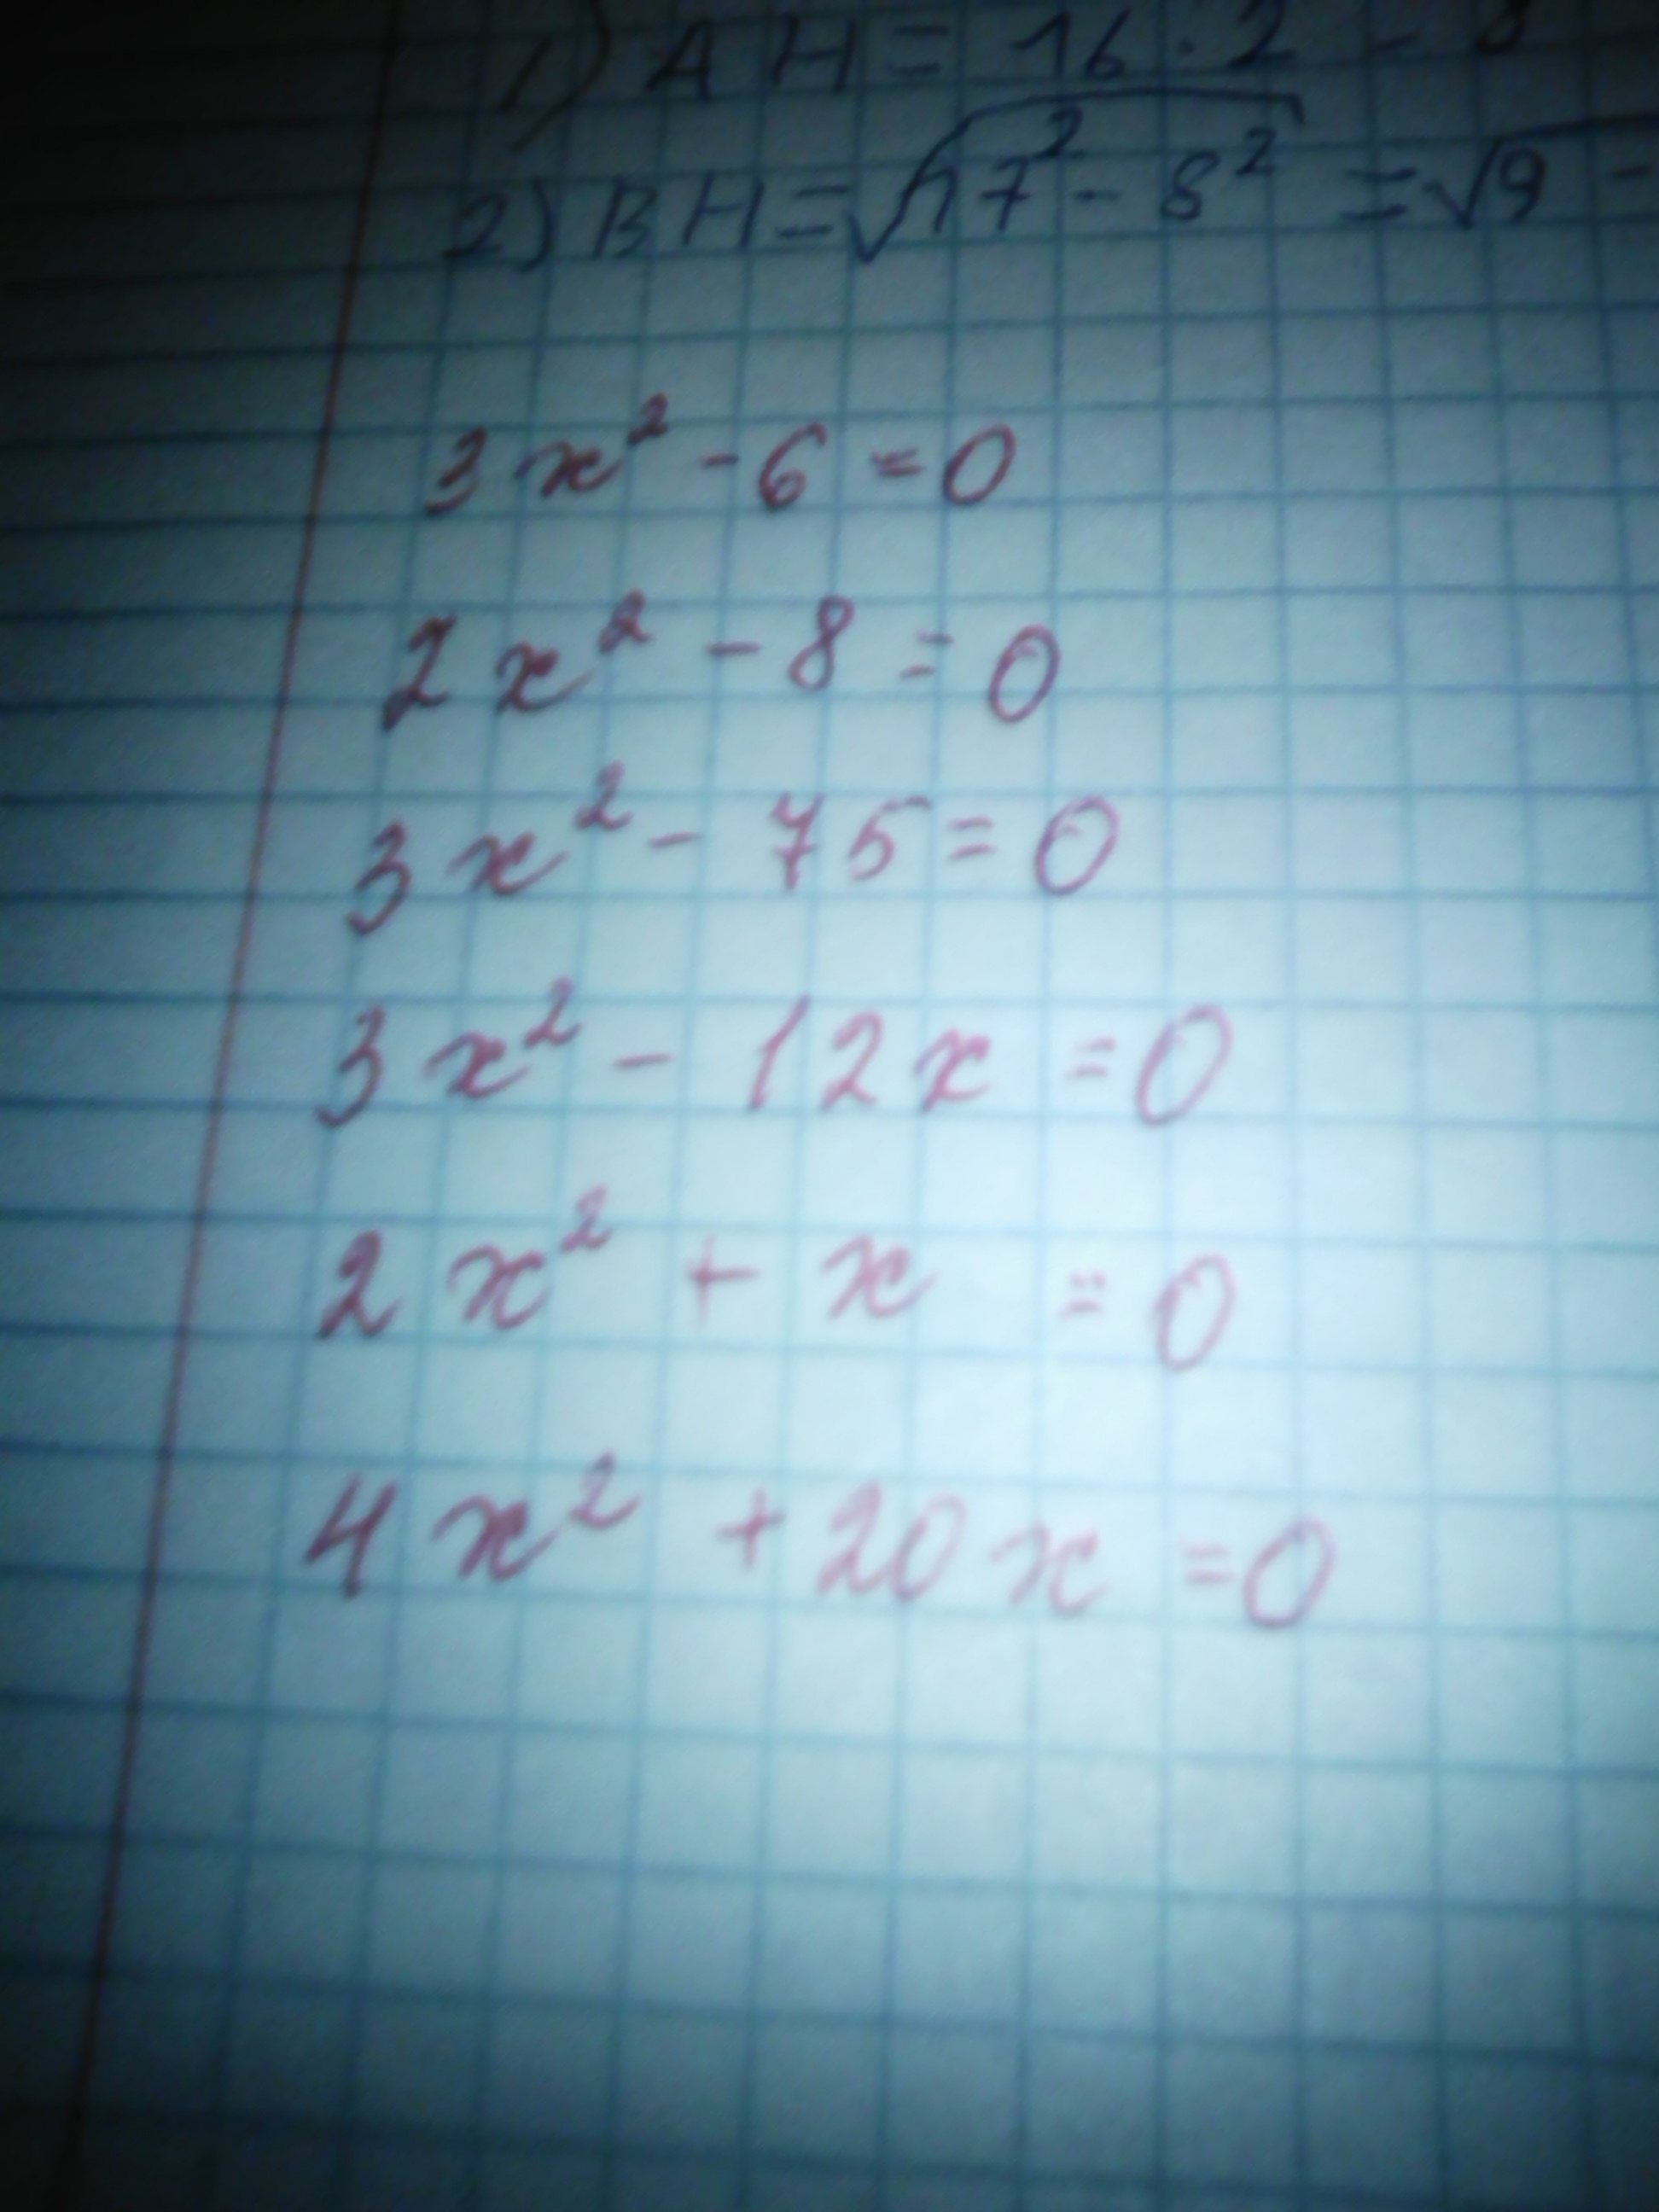 1) AH = 16 · 2 - 8
2) BH = √17² - 8² = √9 -
3x² - 6 = 0
2x² - 8 = 0
3x² - 75 = 0
3x² - 12x = 0
2x² + x = 0
4x² + 20x = 0